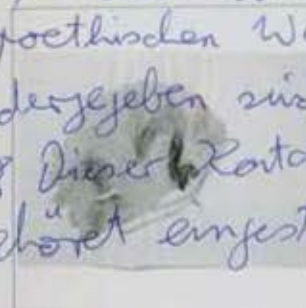 oethischen W
dergegeben sin
Dieser Konta
ehöret eingest